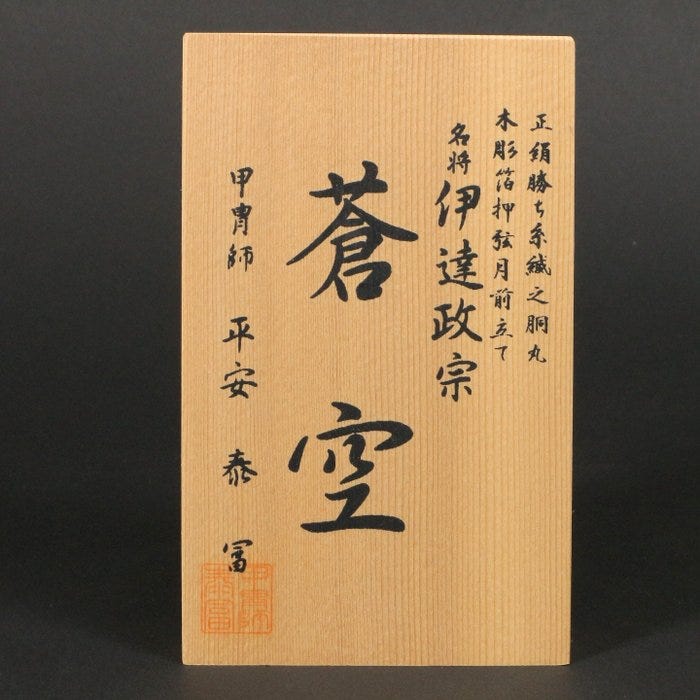 正絹勝ち糸縅之胴丸
木彫箔押弦月前立て
名将 伊達政宗
蒼空
甲冑師 平安 泰冨
甲冑師泰冨